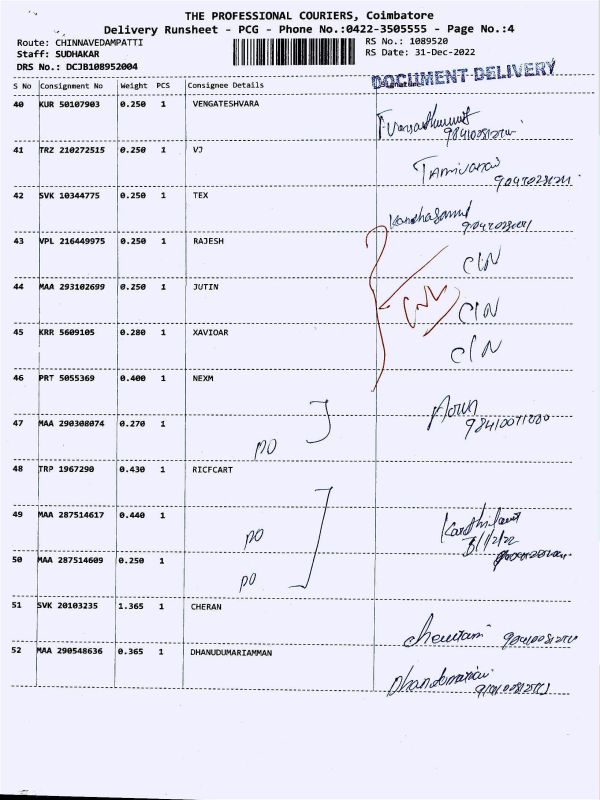 THE PROFESSIONAL COURIERS, Coimbatore
Delivery Runsheet - PCG - Phone No.:0422-3505555 - Page No.:4
Route: CHINNAVEDAMPATTI RS No.: 1089520
Staff: SUDHAKAR RS Date: 31-Dec-2022
DRS No.: DCJB108952004
DOCUMENT DELIVERY
S No Consignment No Weight PCS Consignee Details Signature
40 KUR 50107903 0.250 1 VENGATESHVARA
41 TRZ 210272515 0.250 1 VJ
42 SVK 10344775 0.250 1 TEX
43 VPL 216449975 0.250 1 RAJESH CIN
44 MAA 293102699 0.250 1 JUTIN CIN
45 KRR 5609105 0.280 1 XAVIOAR CIN
46 PRT 5055369 0.400 1 NEXM
47 MAA 290308074 0.270 1 PO
48 TRP 1967290 0.430 1 RICFCART
49 MAA 287514617 0.440 1 PO
50 MAA 287514609 0.250 1 PO
51 SVK 20103235 1.365 1 CHERAN
52 MAA 290548636 0.365 1 DHANUDUMARIAMMAN